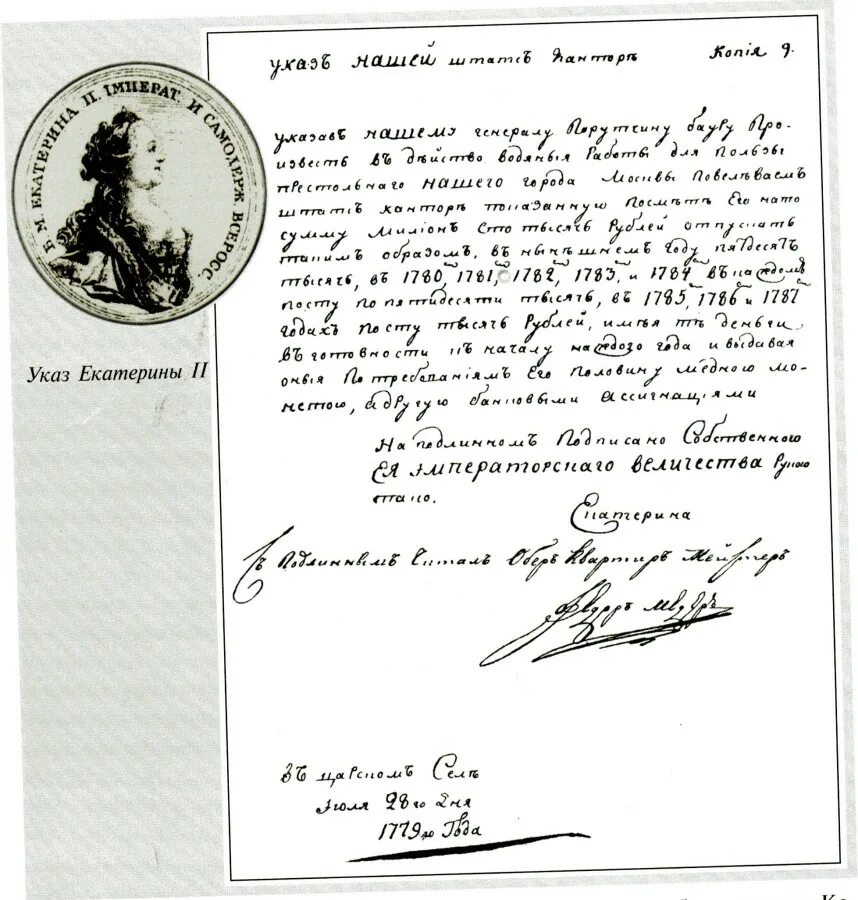 Б. М. ЕКАТЕРИНА II. IМПЕРАТ. И САМОДЕРЖ. ВСЕРОСС.
Указ Екатерины II
указъ нашей штатсъ Канторѣ Копiя 9.
указавъ нашему генералу Порутчику бауру Про-
известь въ дѣйство водяныя Работы для Пользы
престольнаго нашего города Москвы Повелѣваемъ
штатсъ канторѣ показанную Посмѣтѣ Его на то
сумму милионъ сто тысячь Рублей отпускать
такимъ образомъ. въ нынѣшнемъ году пятдесятъ
тысячь, въ 1780, 1781, 1782, 1783, и 1784 въ каждомъ
посту по пятидесяти тысячь, въ 1785, 1786 и 1787
годахъ по сту тысячь Рублей, имѣя тѣ деньги
въ готовности къ началу каждого года и выдавая
оныя По требованiямъ Его половину мѣдною мо-
нетою, а другую банковыми ассигнацiями
На подлинномъ Подписано Собственного
Ея императорскаго величества Рукою
тако.
Екатерина
Съ Подлиннымъ Читалъ Оберъ Квартирь Мейстеръ
въ царскомъ Селѣ
Iюля 28го Дня
1779го Года